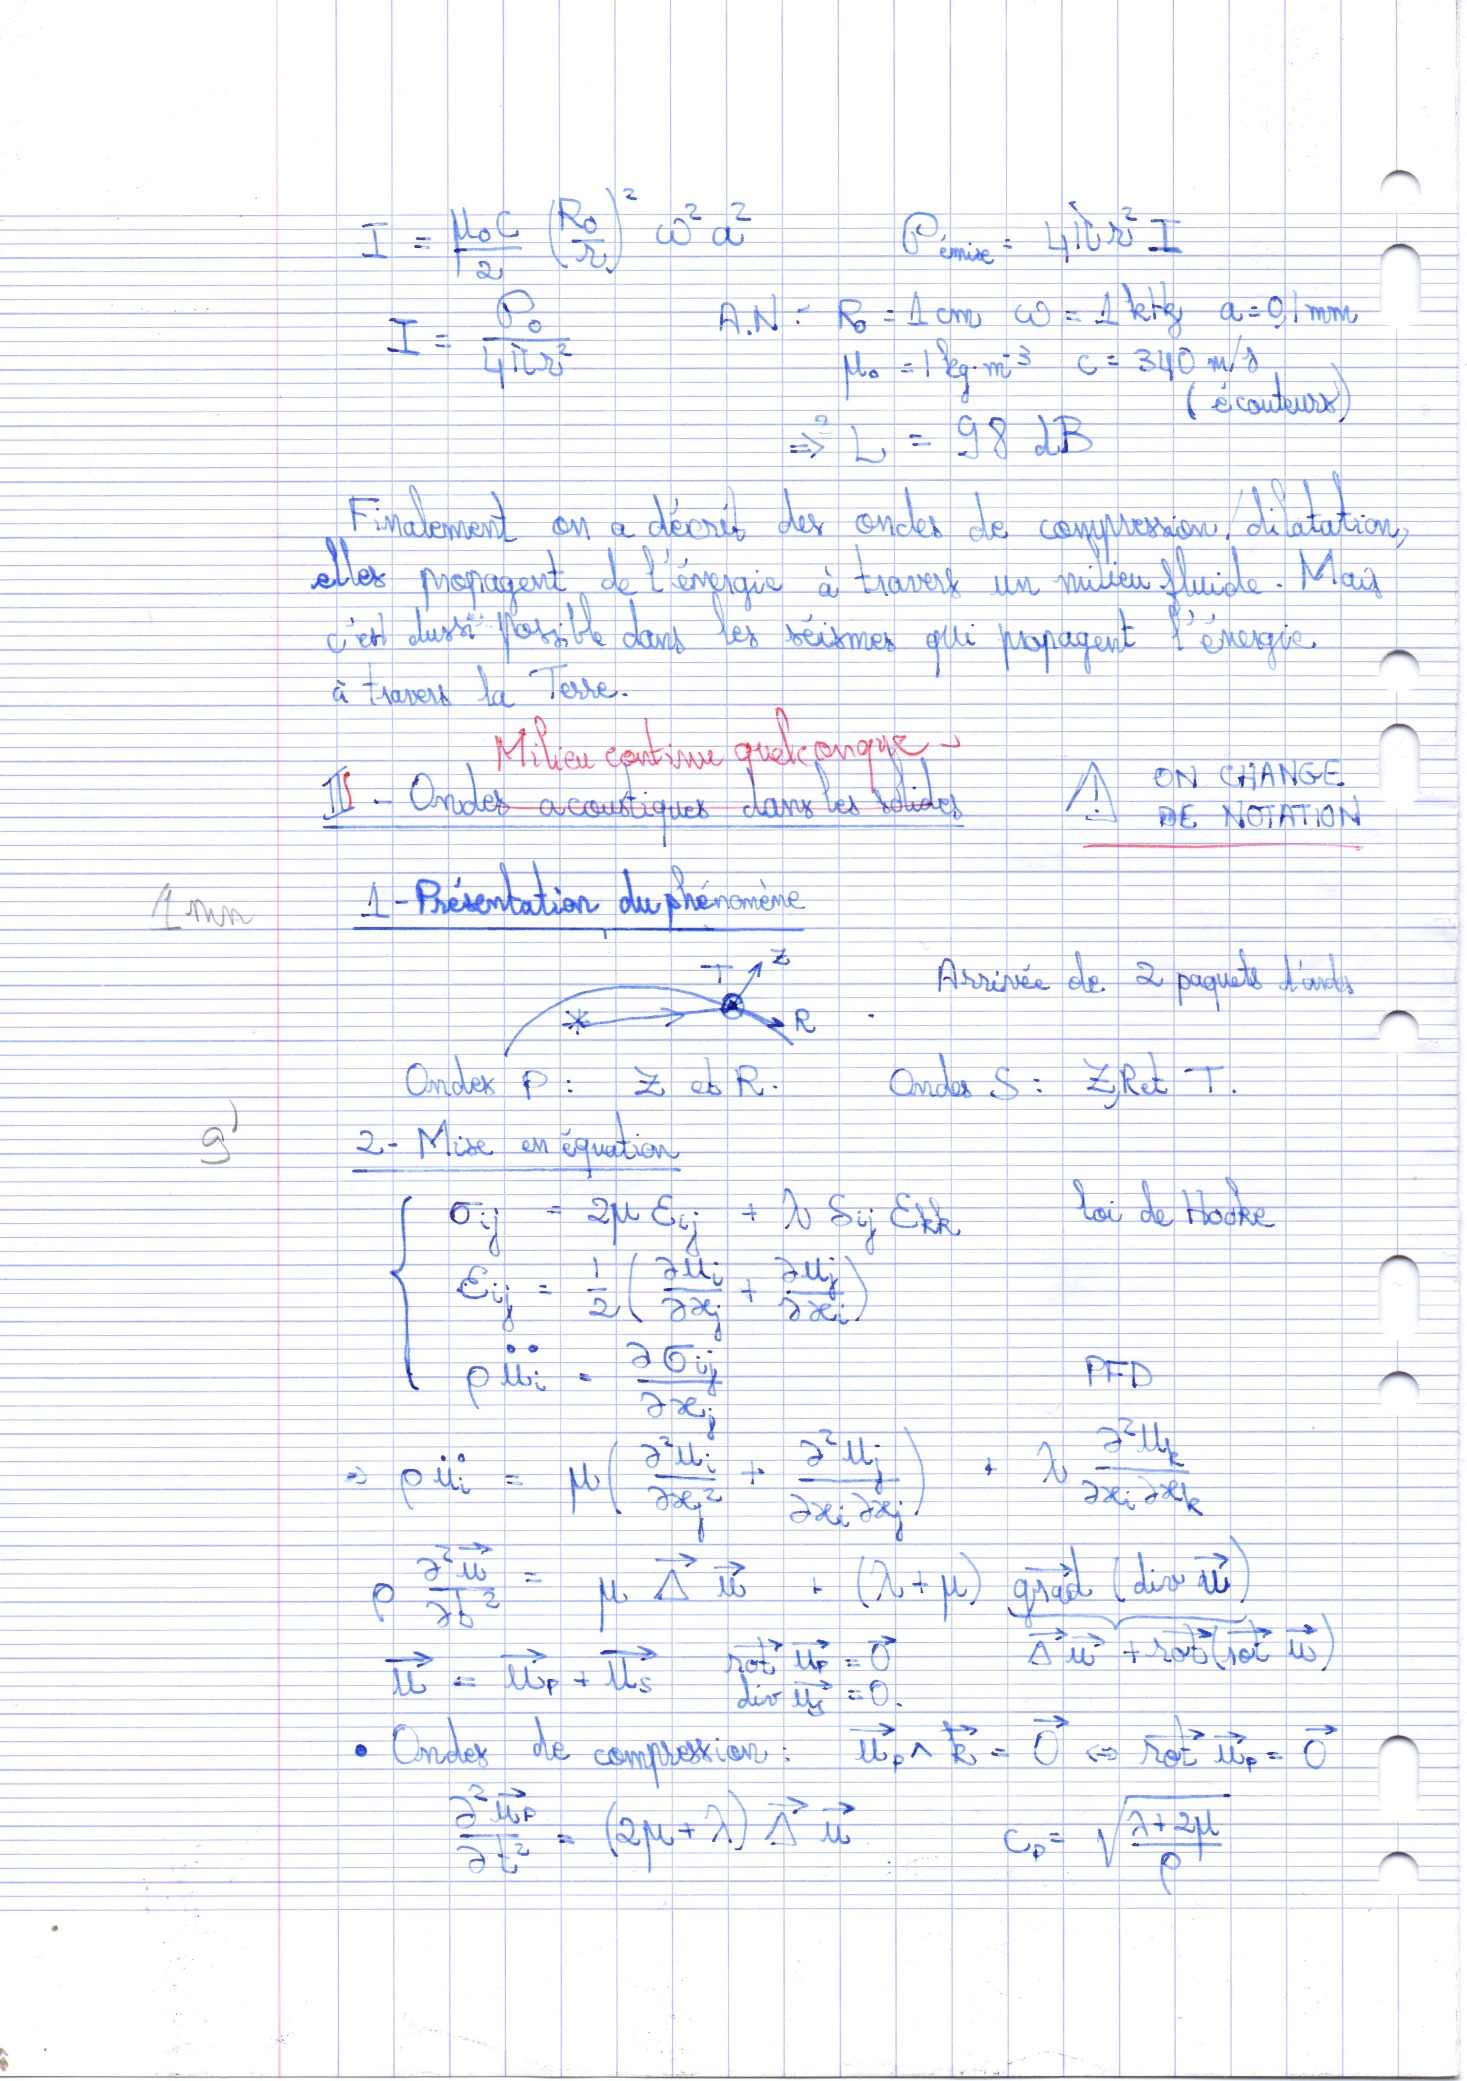 I = μ₀c/2 (R₀/r)² ω² a²    𝒫émise = 4πr² I
I = 𝒫₀/4πr²    A.N : R₀ = 1 cm  ω = 1 kHz  a = 0,1 mm
μ₀ = 1 kg·m⁻³  c = 340 m/s
(écouteurs)
⇒² L = 98 dB
Finalement on a décrit des ondes de compression/dilatation,
elles propagent de l'énergie à travers un milieu fluide. Mais
c'est aussi possible dans les séismes qui propagent l'énergie
à travers la Terre.
Milieu continu quelconque
III - Ondes acoustiques dans les solides    ⚠ ON CHANGE
DE NOTATION
1 mn    1 - Présentation du phénomène
T  Z  R    Arrivée de 2 paquets d'ondes
Ondes P : Z et R.    Ondes S : Z, R et T.
9'    2 - Mise en équation
σij = 2μ εij + λ δij εkk    loi de Hooke
εij = 1/2 (∂ui/∂xj + ∂uj/∂xi)
ρ üi = ∂σij/∂xj    PFD
⇒ ρ üi = μ (∂²ui/∂xj² + ∂²uj/∂xi∂xj) + λ ∂²uk/∂xi∂xk
ρ ∂²u⃗/∂t² = μ Δ⃗ u⃗ + (λ+μ) grad⃗ (div u⃗)
u⃗ = u⃗P + u⃗S    rot⃗ u⃗P = 0⃗    Δ⃗ u⃗ + rot⃗ (rot⃗ u⃗)
div u⃗S = 0.
• Ondes de compression : u⃗P ∧ k⃗ = 0⃗ ⇔ rot⃗ u⃗P = 0⃗
∂²u⃗P/∂t² = (2μ+λ) Δ⃗ u⃗    cP = √((λ+2μ)/ρ)